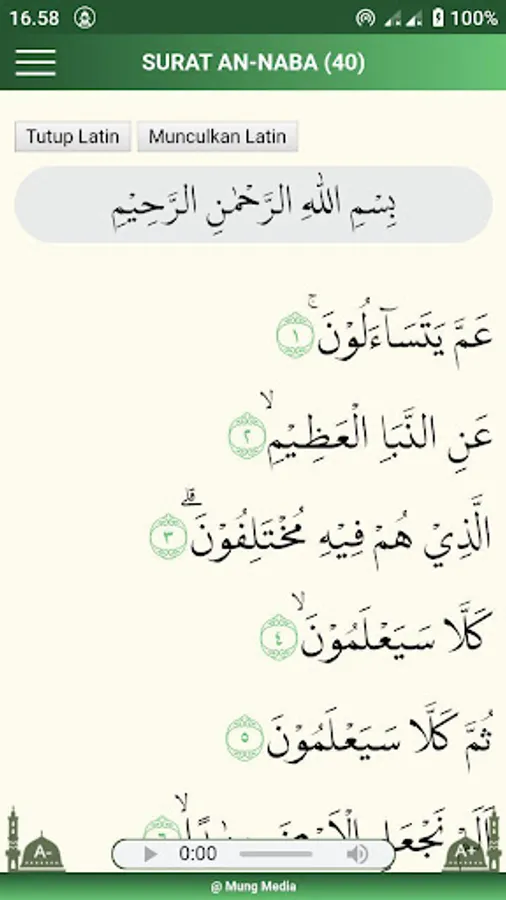 16.58 100%
SURAT AN-NABA (40)
Tutup Latin Munculkan Latin
بِسْمِ اللّٰهِ الرَّحْمٰنِ الرَّحِيْمِ
عَمَّ يَتَسَاۤءَلُوْنَۚ ١
عَنِ النَّبَاِ الْعَظِيْمِۙ ٢
الَّذِيْ هُمْ فِيْهِ مُخْتَلِفُوْنَۗ ٣
كَلَّا سَيَعْلَمُوْنَۙ ٤
ثُمَّ كَلَّا سَيَعْلَمُوْنَ ٥
اَلَمْ نَجْعَلِ الْاَرْضَ ٦
A- 0:00 A+
@ Mung Media